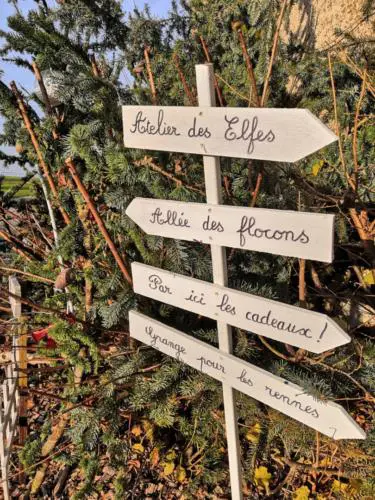 Atelier des Elfes
Allée des flocons
Par ici les cadeaux!
Grange pour les rennes